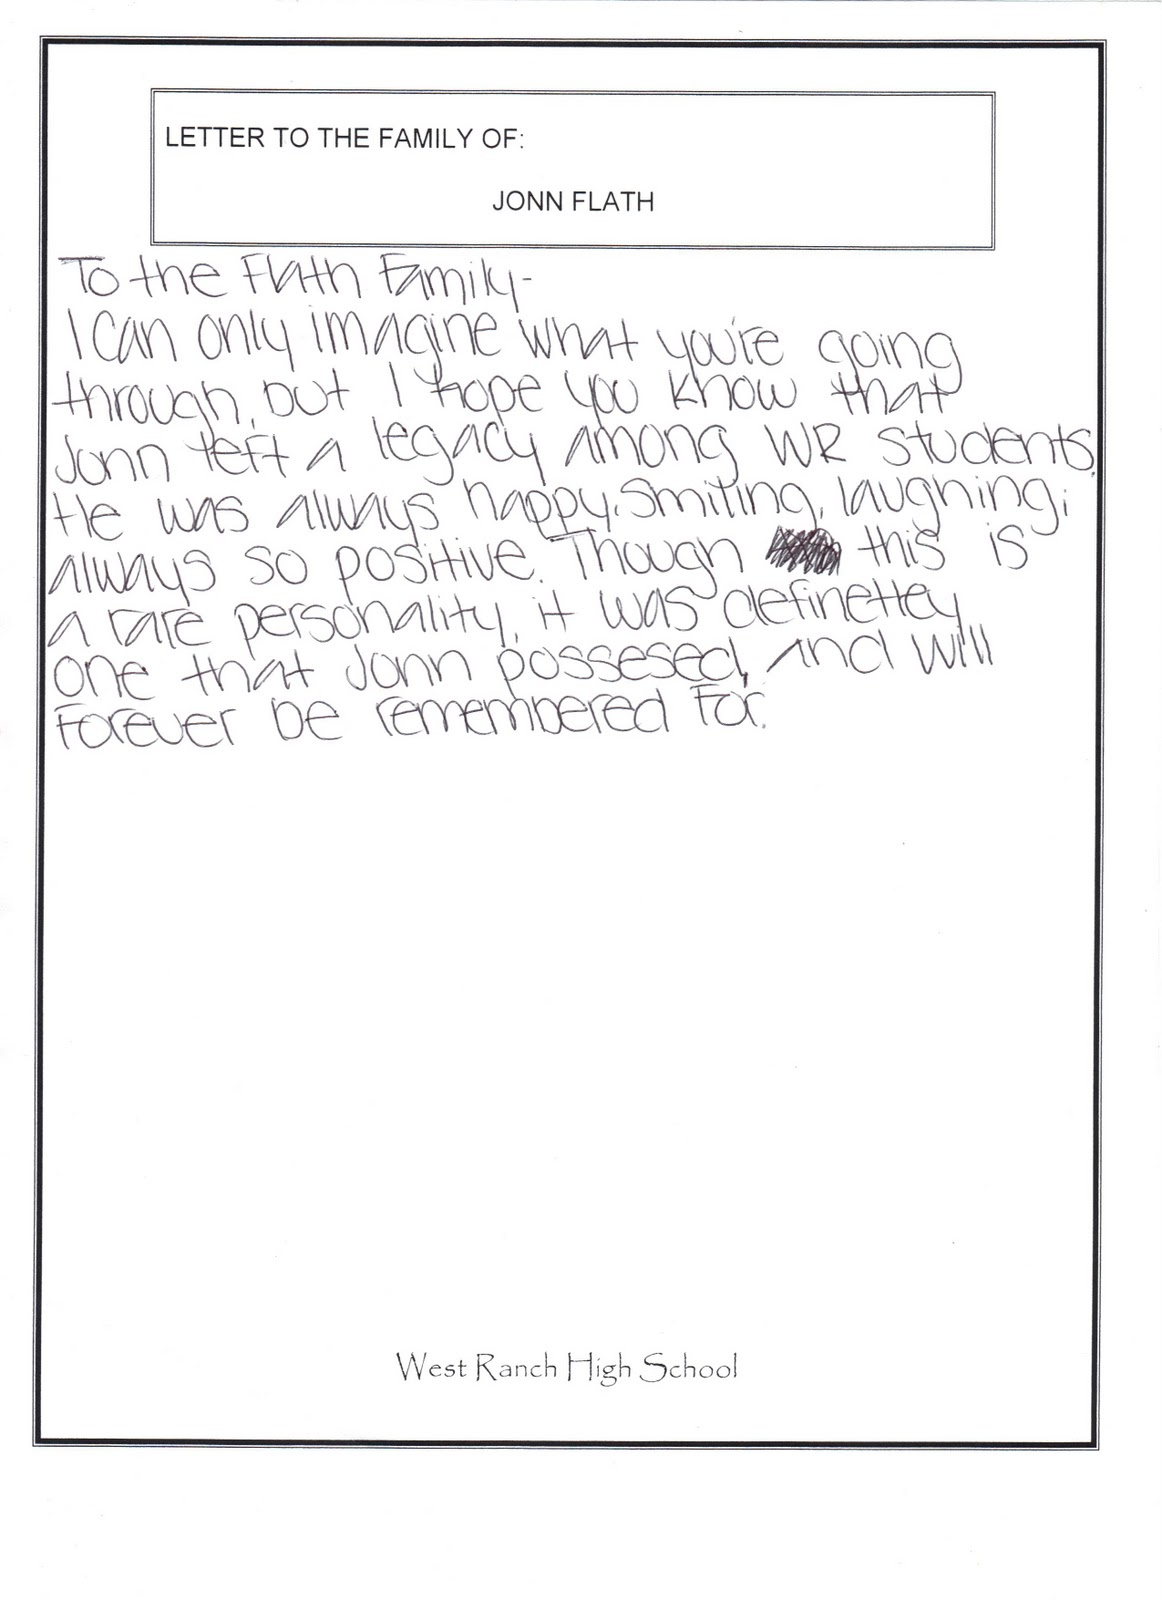 LETTER TO THE FAMILY OF:
JONN FLATH
To the Flath Family-
I can only imagine what you're going
through, but I hope you know that
Jonn left a legacy among WR students.
He was always happy, smiling, laughing;
always so positive. Though this is
a rare personality, it was definetley
one that Jonn possesed, and will
forever be remembered for.
West Ranch High School